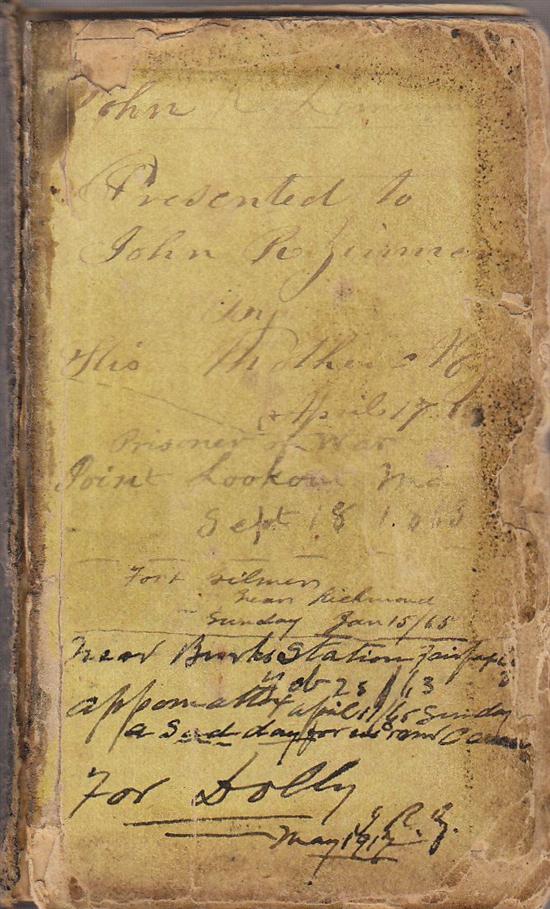 John R
Presented to
John R Zimmer
by
His Mother
April 17
Prisoner of War
Point Lookout Md
Sept 18 1863
Fort Gilmer
Near Richmond
Sunday Jan 15/65
near Burks Station Fairfax
appomattox april Sunday
a sad day for
For Dolly
J. R. Z.
May 1917